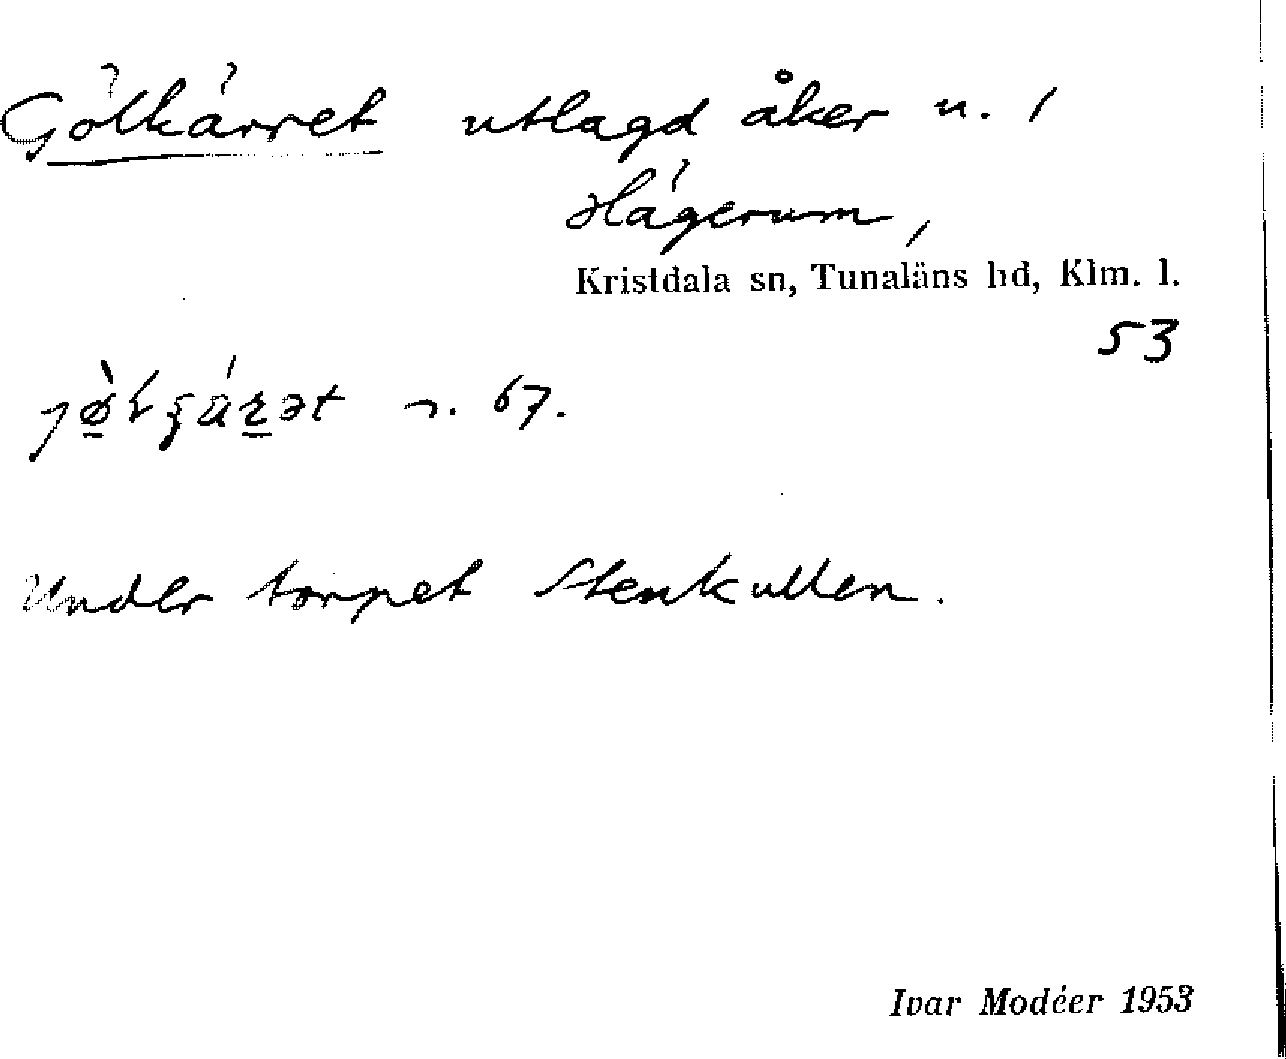 Gölkärret utlagd åker n. 1
Hägerum,
Kristdala sn, Tunaläns hd, Klm. l.
53
r. 67.
Under torpet Stenkullen.
Ivar Modéer 1953